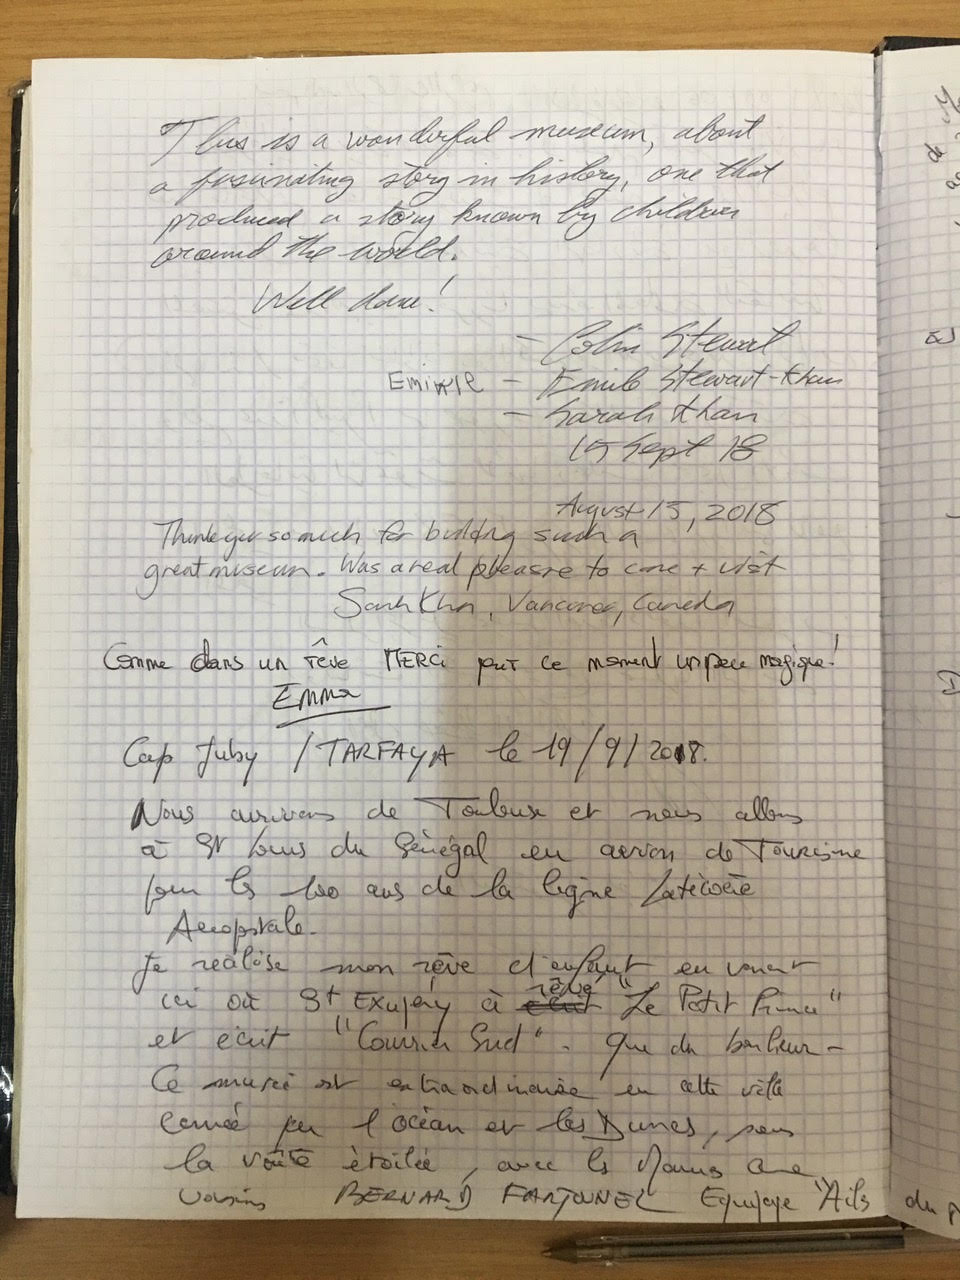 This is a wonderful museum, about
a fascinating story in history, one that
produced a story known by children
around the world.
Well done!
- Colin Stewart
Emile - Emile Stewart-Khan
- Sarah Khan
15 Sept 18
August 15, 2018
Thank you so much for building such a
great museum. Was a real pleasure to come + visit
Sarah Khan, Vancouver, Canada
Comme dans un rêve MERCI pour ce moment un peu magique!
Emma
Cap Juby / TARFAYA le 19/9/2018.
Nous arrivons de Toulouse et nous allons
à St Louis du Sénégal en avion de Tourisme
pour les 100 ans de la ligne Latécoère
Aeropostale.
Je réalise mon rêve d'enfant en venant
ici où St Exupéry à rêvé "Le Petit Prince"
et écrit "Courrier Sud". Que du bonheur -
Ce musée est extraordinaire en cette ville
cernée par l'océan et les Dunes, sous
la voûte étoilée, avec les
voisins BERNARD Equipage "Ailes